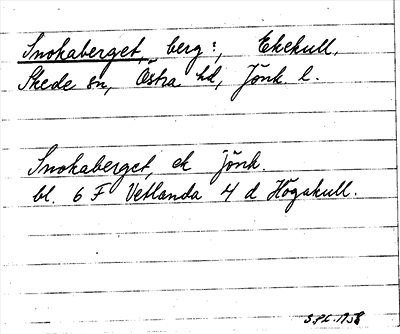 Snokaberget, berg:, Ekekull,
Skede sn, Östra hd, Jönk l.
Snokaberget, ek Jönk.
bl. 6 F Vetlanda 4 d Högakull.